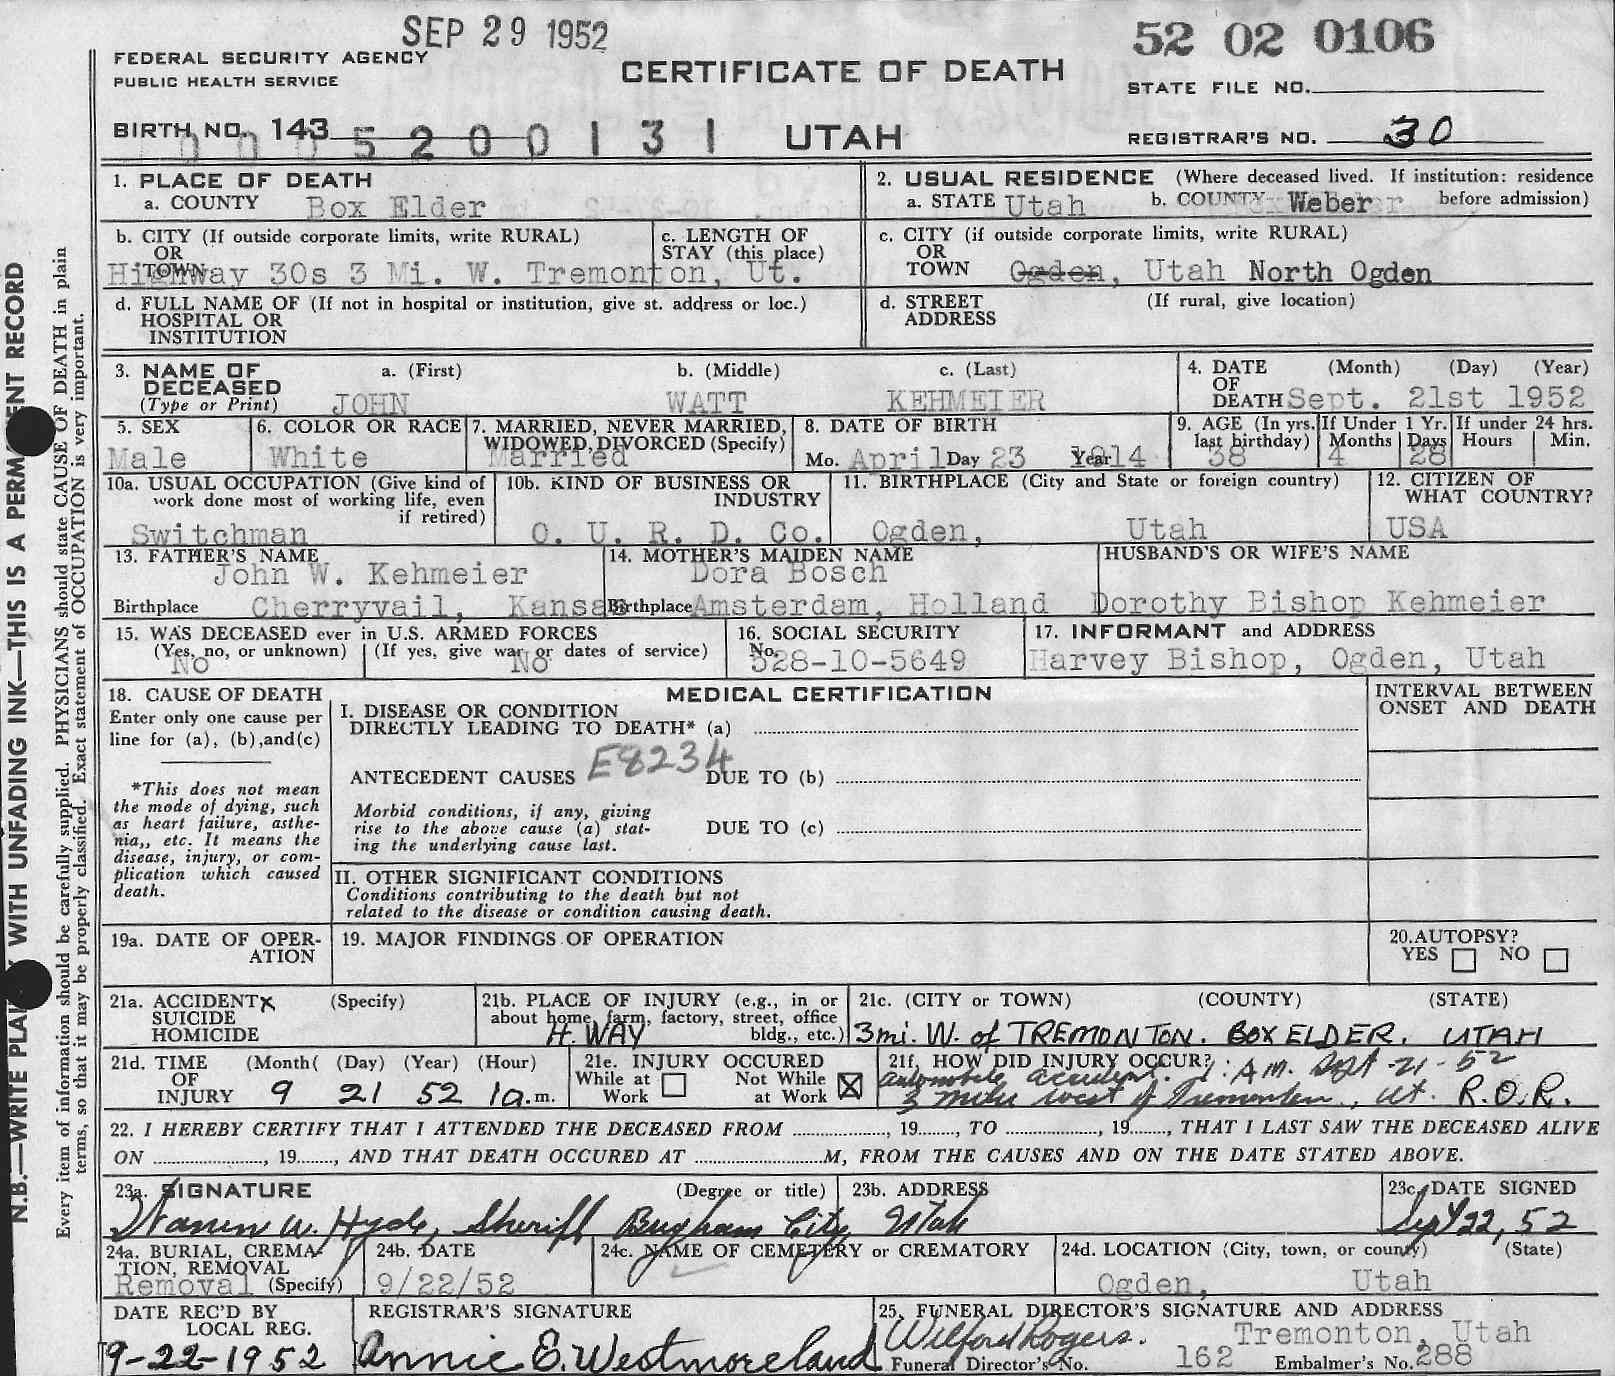 SEP 29 1952
52 02 0106
FEDERAL SECURITY AGENCY
PUBLIC HEALTH SERVICE
CERTIFICATE OF DEATH
STATE FILE NO.
BIRTH NO. 143
0005200131
UTAH
REGISTRAR'S NO. 30
1. PLACE OF DEATH
a. COUNTY Box Elder
2. USUAL RESIDENCE (Where deceased lived. If institution: residence before admission)
a. STATE Utah b. COUNTY Weber
b. CITY (If outside corporate limits, write RURAL)
OR
TOWN
Highway 30s 3 Mi. W. Tremonton, Ut.
c. LENGTH OF
STAY (this place)
c. CITY (if outside corporate limits, write RURAL)
OR
TOWN Ogden, Utah North Ogden
d. FULL NAME OF (If not in hospital or institution, give st. address or loc.)
HOSPITAL OR
INSTITUTION
d. STREET (If rural, give location)
ADDRESS
3. NAME OF a. (First) b. (Middle) c. (Last)
DECEASED
(Type or Print) JOHN WATT KEHMEIER
4. DATE (Month) (Day) (Year)
OF
DEATH Sept. 21st 1952
5. SEX
Male
6. COLOR OR RACE
White
7. MARRIED, NEVER MARRIED,
WIDOWED, DIVORCED (Specify)
Married
8. DATE OF BIRTH
Mo. April Day 23 Year 1914
9. AGE (In yrs. last birthday) If Under 1 Yr. If under 24 hrs.
Months Days Hours Min.
38 4 28
10a. USUAL OCCUPATION (Give kind of
work done most of working life, even
if retired)
Switchman
10b. KIND OF BUSINESS OR
INDUSTRY
O. U. R. D. Co.
11. BIRTHPLACE (City and State or foreign country)
Ogden, Utah
12. CITIZEN OF
WHAT COUNTRY?
USA
13. FATHER'S NAME
John W. Kehmeier
Birthplace Cherryvail, Kansas
14. MOTHER'S MAIDEN NAME
Dora Bosch
Birthplace Amsterdam, Holland
HUSBAND'S OR WIFE'S NAME
Dorothy Bishop Kehmeier
15. WAS DECEASED ever in U.S. ARMED FORCES
(Yes, no, or unknown) (If yes, give war or dates of service)
No No
16. SOCIAL SECURITY
No.
528-10-5649
17. INFORMANT and ADDRESS
Harvey Bishop, Ogden, Utah
18. CAUSE OF DEATH
Enter only one cause per
line for (a), (b),and(c)
*This does not mean
the mode of dying, such
as heart failure, asthe-
nia,, etc. It means the
disease, injury, or com-
plication which caused
death.
MEDICAL CERTIFICATION
I. DISEASE OR CONDITION
DIRECTLY LEADING TO DEATH* (a)
ANTECEDENT CAUSES E8234 DUE TO (b)
Morbid conditions, if any, giving
rise to the above cause (a) stat-
ing the underlying cause last.
DUE TO (c)
II. OTHER SIGNIFICANT CONDITIONS
Conditions contributing to the death but not
related to the disease or condition causing death.
INTERVAL BETWEEN
ONSET AND DEATH
19a. DATE OF OPER-
ATION
19. MAJOR FINDINGS OF OPERATION
20. AUTOPSY?
YES NO
21a. ACCIDENT x (Specify)
SUICIDE
HOMICIDE
21b. PLACE OF INJURY (e.g., in or
about home, farm, factory, street, office
bldg., etc.)
H. WAY
21c. (CITY or TOWN) (COUNTY) (STATE)
3 mi. W. of TREMONTON. BOX ELDER. UTAH
21d. TIME (Month( (Day) (Year) (Hour)
OF
INJURY 9 21 52 1a.m.
21e. INJURY OCCURED
While at Work Not While at Work X
21f. HOW DID INJURY OCCUR?
automobile accident. 1: A.M. Sept-21-52
3 miles west of Tremonton, Ut. R.O.R.
22. I HEREBY CERTIFY THAT I ATTENDED THE DECEASED FROM , 19 , TO , 19 , THAT I LAST SAW THE DECEASED ALIVE
ON , 19 , AND THAT DEATH OCCURED AT M, FROM THE CAUSES AND ON THE DATE STATED ABOVE.
23a. SIGNATURE (Degree or title)
Warren W. Hyde, Sheriff
23b. ADDRESS
Brigham City, Utah
23c. DATE SIGNED
Sept 22, 52
24a. BURIAL, CREMA-
TION, REMOVAL
Removal (Specify)
24b. DATE
9/22/52
24c. NAME OF CEMETERY or CREMATORY
24d. LOCATION (City, town, or county) (State)
Ogden, Utah
DATE REC'D BY
LOCAL REG.
9-22-1952
REGISTRAR'S SIGNATURE
Annie E. Westmoreland
25. FUNERAL DIRECTOR'S SIGNATURE AND ADDRESS
Wilford Rogers. Tremonton, Utah
Funeral Director's No. 162 Embalmer's No. 288
N.B.—WRITE PLAINLY WITH UNFADING INK—THIS IS A PERMANENT RECORD
Every item of information should be carefully supplied. PHYSICIANS should state CAUSE OF DEATH in plain
terms, so that it may be properly classified. Exact statement of OCCUPATION is very important.